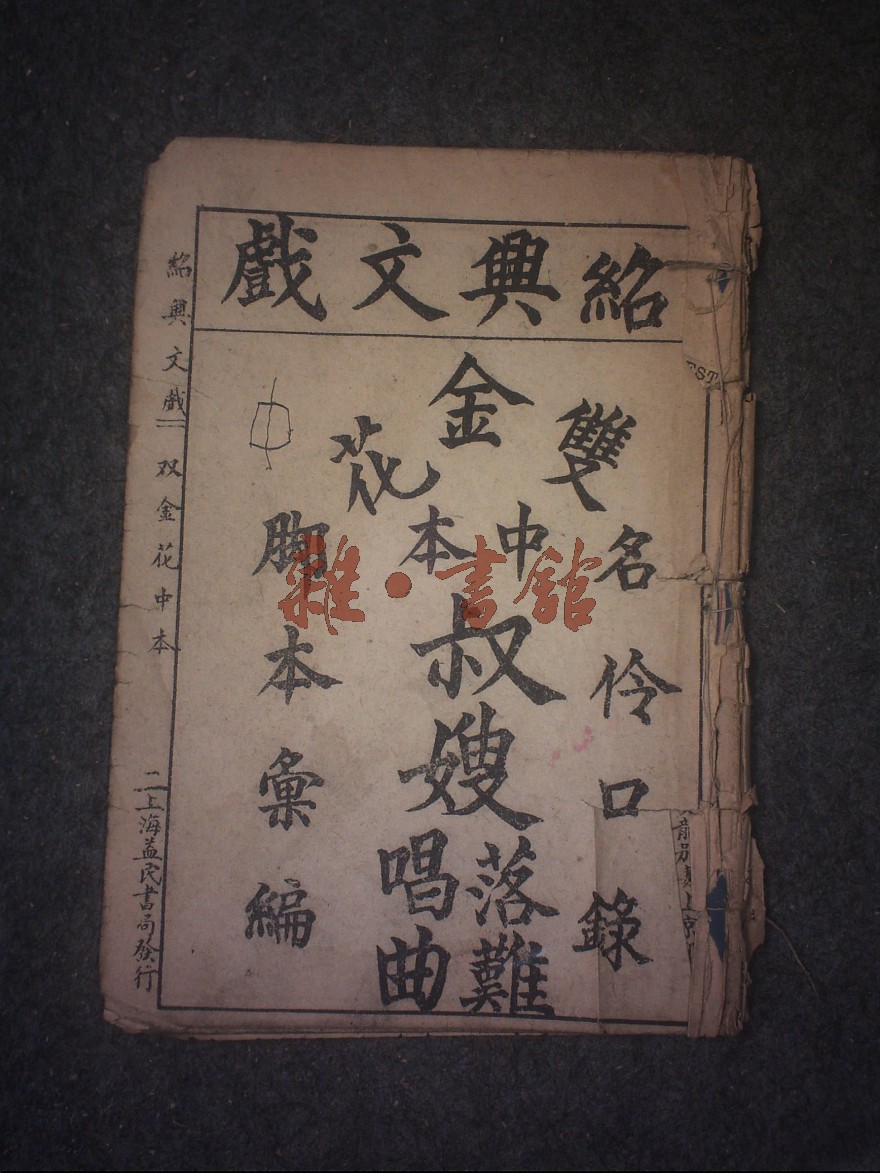 紹興文戲
雙金花
中本
名伶口錄
叔嫂落難唱曲
腳本彙編
中
紹興文戲 双金花中本
二上海益民書局發行
雜·書館